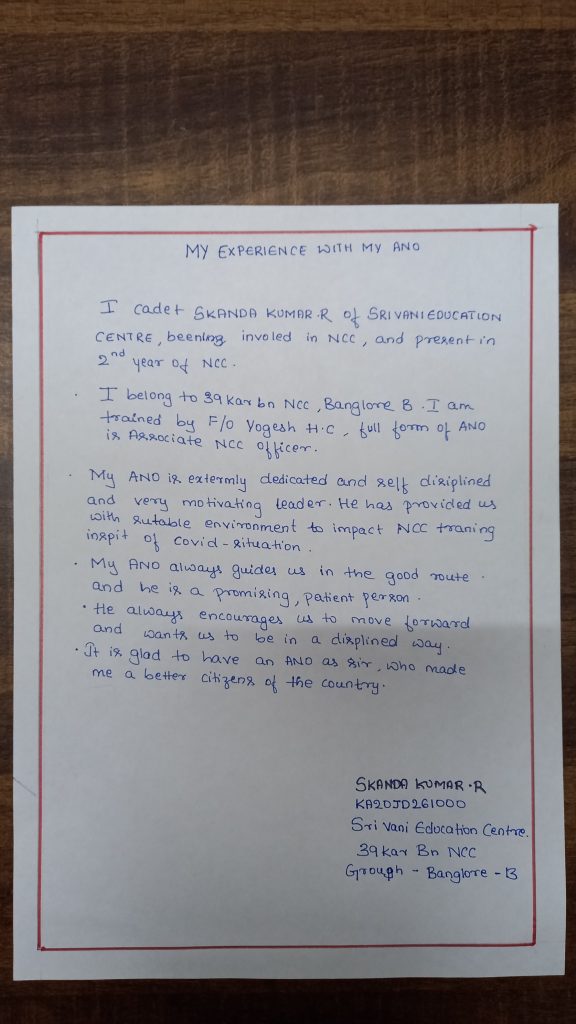 MY EXPERIENCE WITH MY ANO
I cadet SKANDA KUMAR.R of SRIVANI EDUCATION
CENTRE, beening involed in NCC, and present in
2nd year of NCC.
I belong to 39 Kar bn NCC, Banglore B. I am
trained by F/O Yogesh H.C, full form of ANO
is Associate NCC officer.
My ANO is extermly dedicated and self disiplined
and very motivating leader. He has provided us
with sutable environment to impact NCC traning
inspit of covid-situation.
My ANO always guides us in the good route.
and he is a promising, patient person.
• He always encourages us to move forward
and wants us to be in a displined way.
• It is glad to have an ANO as sir, who made
me a better citizens of the country.
SKANDA KUMAR.R
KA20JD261000
Sri Vani Education Centre.
39 Kar Bn NCC
Grouph - Banglore - B